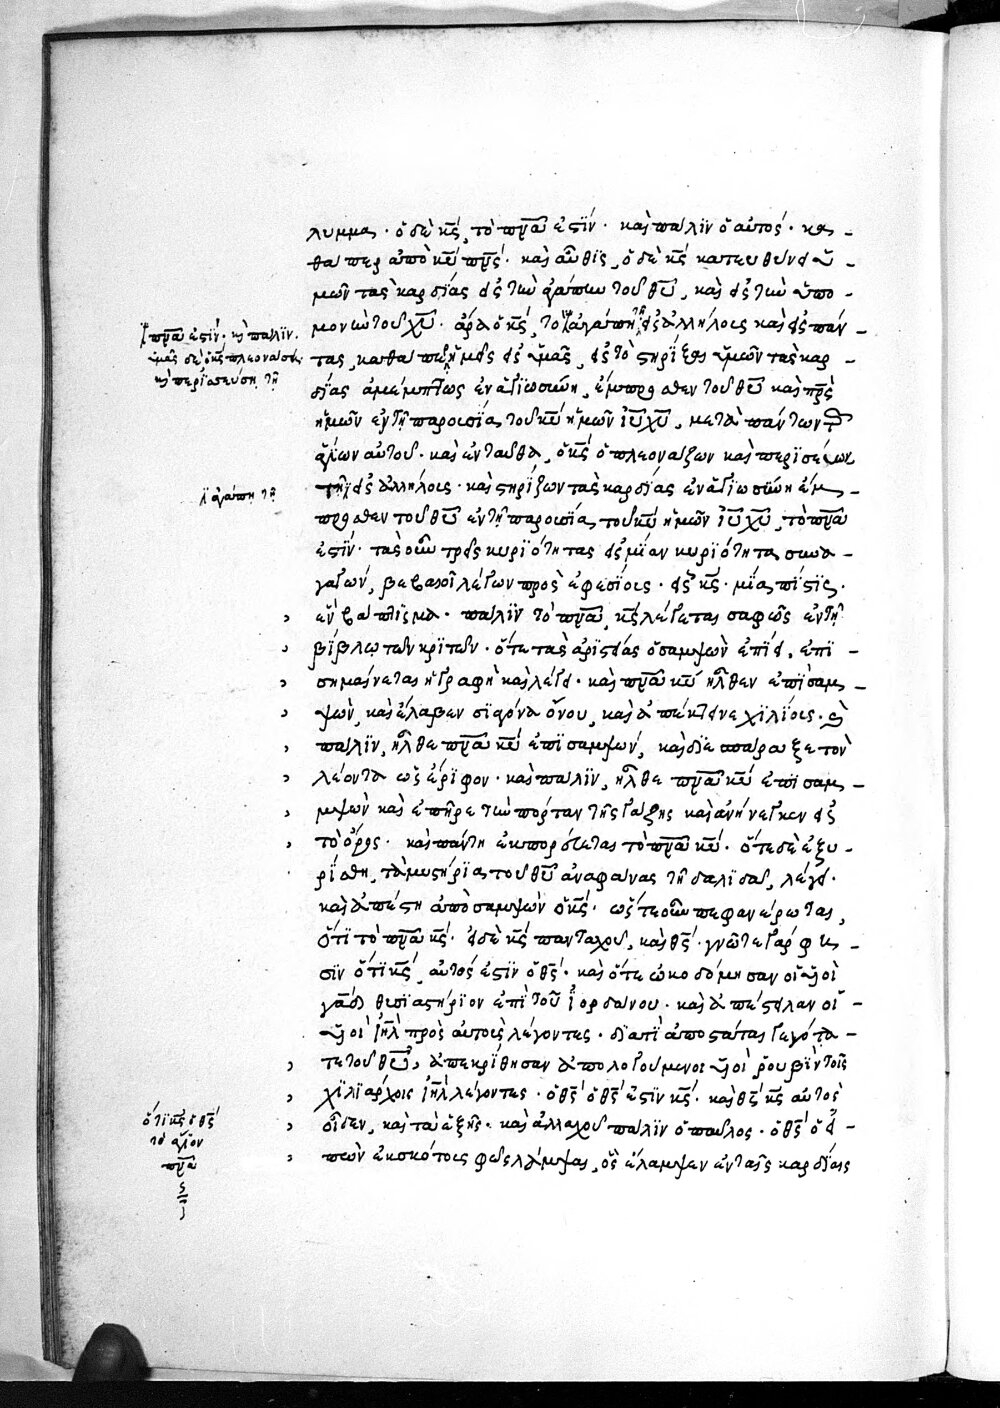 λυμμα· ὁ δὲ κ̅ς̅, τὸ πν̅α̅ ἐστίν· καὶ πάλιν ὁ αὐτός· κα-
θάπερ ἀπὸ κ̅υ̅ πν̅ς̅· καὶ αὖθις, ὁ δὲ κ̅ς̅ κατευθύναι ὑ-
μῶν τὰς καρδίας εἰς τὴν ἀγάπην τοῦ θ̅υ̅, καὶ εἰς τὴν ὑπο-
μονὴν τοῦ χ̅υ̅. ἆρα ὁ κ̅ς̅, τὸ ἀγάπη τῇ εἰς ἀλλήλους καὶ εἰς πάν-
τας, καθάπερ ἡμεῖς εἰς ὑμᾶς, εἰς τὸ στηρίξαι ὑμῶν τὰς καρ-
δίας ἀμέμπτως ἐν ἁγιωσύνη, ἔμπροσθεν τοῦ θ̅υ̅ καὶ πρ̅ς̅
ἡμῶν ἐν τῇ παρουσία τοῦ κ̅υ̅ ἡμῶν ἰ̅υ̅ χ̅υ̅, μετὰ πάντων τῶν
ἁγίων αὐτοῦ· καὶ ἐνταῦθα, ὁ κ̅ς̅ ὁ πλεονάζων καὶ περισεύων
τῇ εἰς ἀλλήλους· καὶ στηρίζων τὰς καρδίας ἐν ἁγιωσύνη ἔμ-
προσθεν τοῦ θ̅υ̅ ἐν τῇ παρουσία τοῦ κ̅υ̅ ἡμῶν ἰ̅υ̅ χ̅υ̅, τὸ πν̅α̅
ἐστίν· τὰς οὖν τρεῖς κυριότητας εἰς μίαν κυριότητα συνα-
γαγών, βεβαιοῖ λέγων πρὸς ἐφεσίους· εἷς κ̅ς̅· μία πίστις·
ἓν βάπτισμα· πάλιν τὸ πν̅α̅, κ̅ς̅ λέγεται σαφῶς ἐν τῇ
βίβλῳ τῶν κριτῶν· ὅτε τὰς ἀριστείας ὁ σαμψὼν ἐποίει, ἐπι-
σημαίνεται ἡ γραφὴ καὶ λέγει· καὶ πν̅α̅ κ̅υ̅ ἦλθεν ἐπὶ σαμ-
ψὼν, καὶ ἔλαβεν σιαγόνα ὄνου, καὶ ἀπέκτεινε χιλίους· καὶ
πάλιν, ἦλθε πν̅α̅ κ̅υ̅ ἐπὶ σαμψών, καὶ διεσπάραξε τὸν
λέοντα ὡς ἔριφον· καὶ πάλιν, ἦλθε πν̅α̅ κ̅υ̅ ἐπὶ σαμ-
μψὼν καὶ ἐπῆρε τὴν πόρταν τῆς γάζης καὶ ἀνήνεγκεν εἰς
τὸ ὄρος· καὶ πάντη ἐκπορεύεται τὸ πν̅α̅ κ̅υ̅· ὅτε δὲ ἐξυ-
ρίσθη, τὰ μυστήρια τοῦ θ̅υ̅ ἀναφαίνας τῇ δαλιδᾶ, λέγει·
καὶ ἀπέστη ἀπὸ σαμψὼν ὁ κ̅ς̅· ὥστε οὖν πεφανέρωται,
ὅτι τὸ πν̅α̅ κ̅ς̅· εἰ δὲ κ̅ς̅ πανταχοῦ, καὶ θ̅ς̅· γνῶτε γάρ φη-
σὶν ὅτι κ̅ς̅, αὐτός ἐστιν ὁ θ̅ς̅· καὶ ὅτε ὠκοδόμησαν οἱ υἱοὶ
γὰδ θυσιαστήριον ἐπὶ τοῦ ἰορδάνου· καὶ ἀπέστειλαν οἱ
υἱοὶ ἰ̅η̅λ̅ πρὸς αὐτοὺς λέγοντες· διατί ἀποστάται γεγόνα-
τε τοῦ θ̅υ̅, ἀπεκρίθησαν ἀπολογούμενοι υἱοὶ ῥουβὶν τοῖς
χιλιάρχοις ἰ̅η̅λ̅ λέγοντες· ὁ θ̅ς̅ ὁ θ̅ς̅ ἐστιν κ̅ς̅· καὶ θ̅ς̅ κ̅ς̅ αὐτὸς
οἶδεν, καὶ τὰ ἑξῆς· καὶ ἀλλαχοῦ πάλιν ὁ παῦλος· ὁ θ̅ς̅ ὁ εἰ-
πὼν ἐκ σκότους φῶς λάμψαι, ὃς ἔλαμψεν ἐν ταῖς καρδίαις
πν̅α̅ ἐστίν· καὶ πάλιν.
ὑμᾶς δὲ ὁ κ̅ς̅ πλεονάσαι
καὶ περισεύση τῇ
ἀγάπη τῇ
ὅτι κ̅ς̅ ὁ θ̅ς̅
τὸ ἅγιον
πν̅α̅